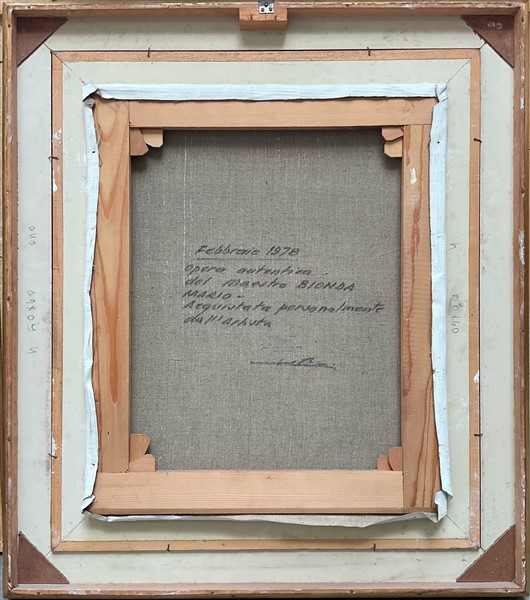 Febbraio 1978
Opera autentica
del Maestro BIONDA
MARIO -
Acquistata personalmente
dall'